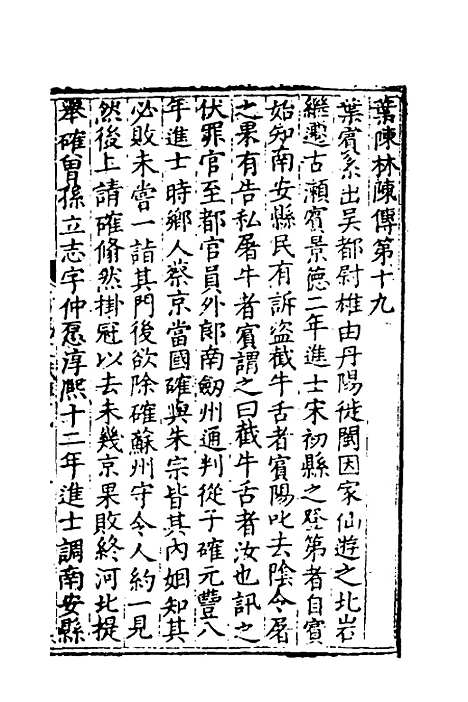 葉陳林陳傳第十九
葉賓系出吳都尉雄由丹陽徙閩因家仙遊之北岩
繼遷古瀬賓景德二年進士宋初縣之登第者自賓
始知南安縣民有訴盜截牛舌者賓陽叱去陰令屠
之果有告私屠牛者賓謂之曰截牛舌者汝也訊之
伏罪官至都官員外郎南劔州通判從子確元豐八
年進士時鄉人蔡京當國確與朱宗皆其內姻知其
必敗未嘗一詣其門後欲除確蘇州守令人約一見
然後上請確脩然掛冠以去未幾京果敗終河北提
舉確曾孫立志字仲愚淳熙十二年進士調南安縣